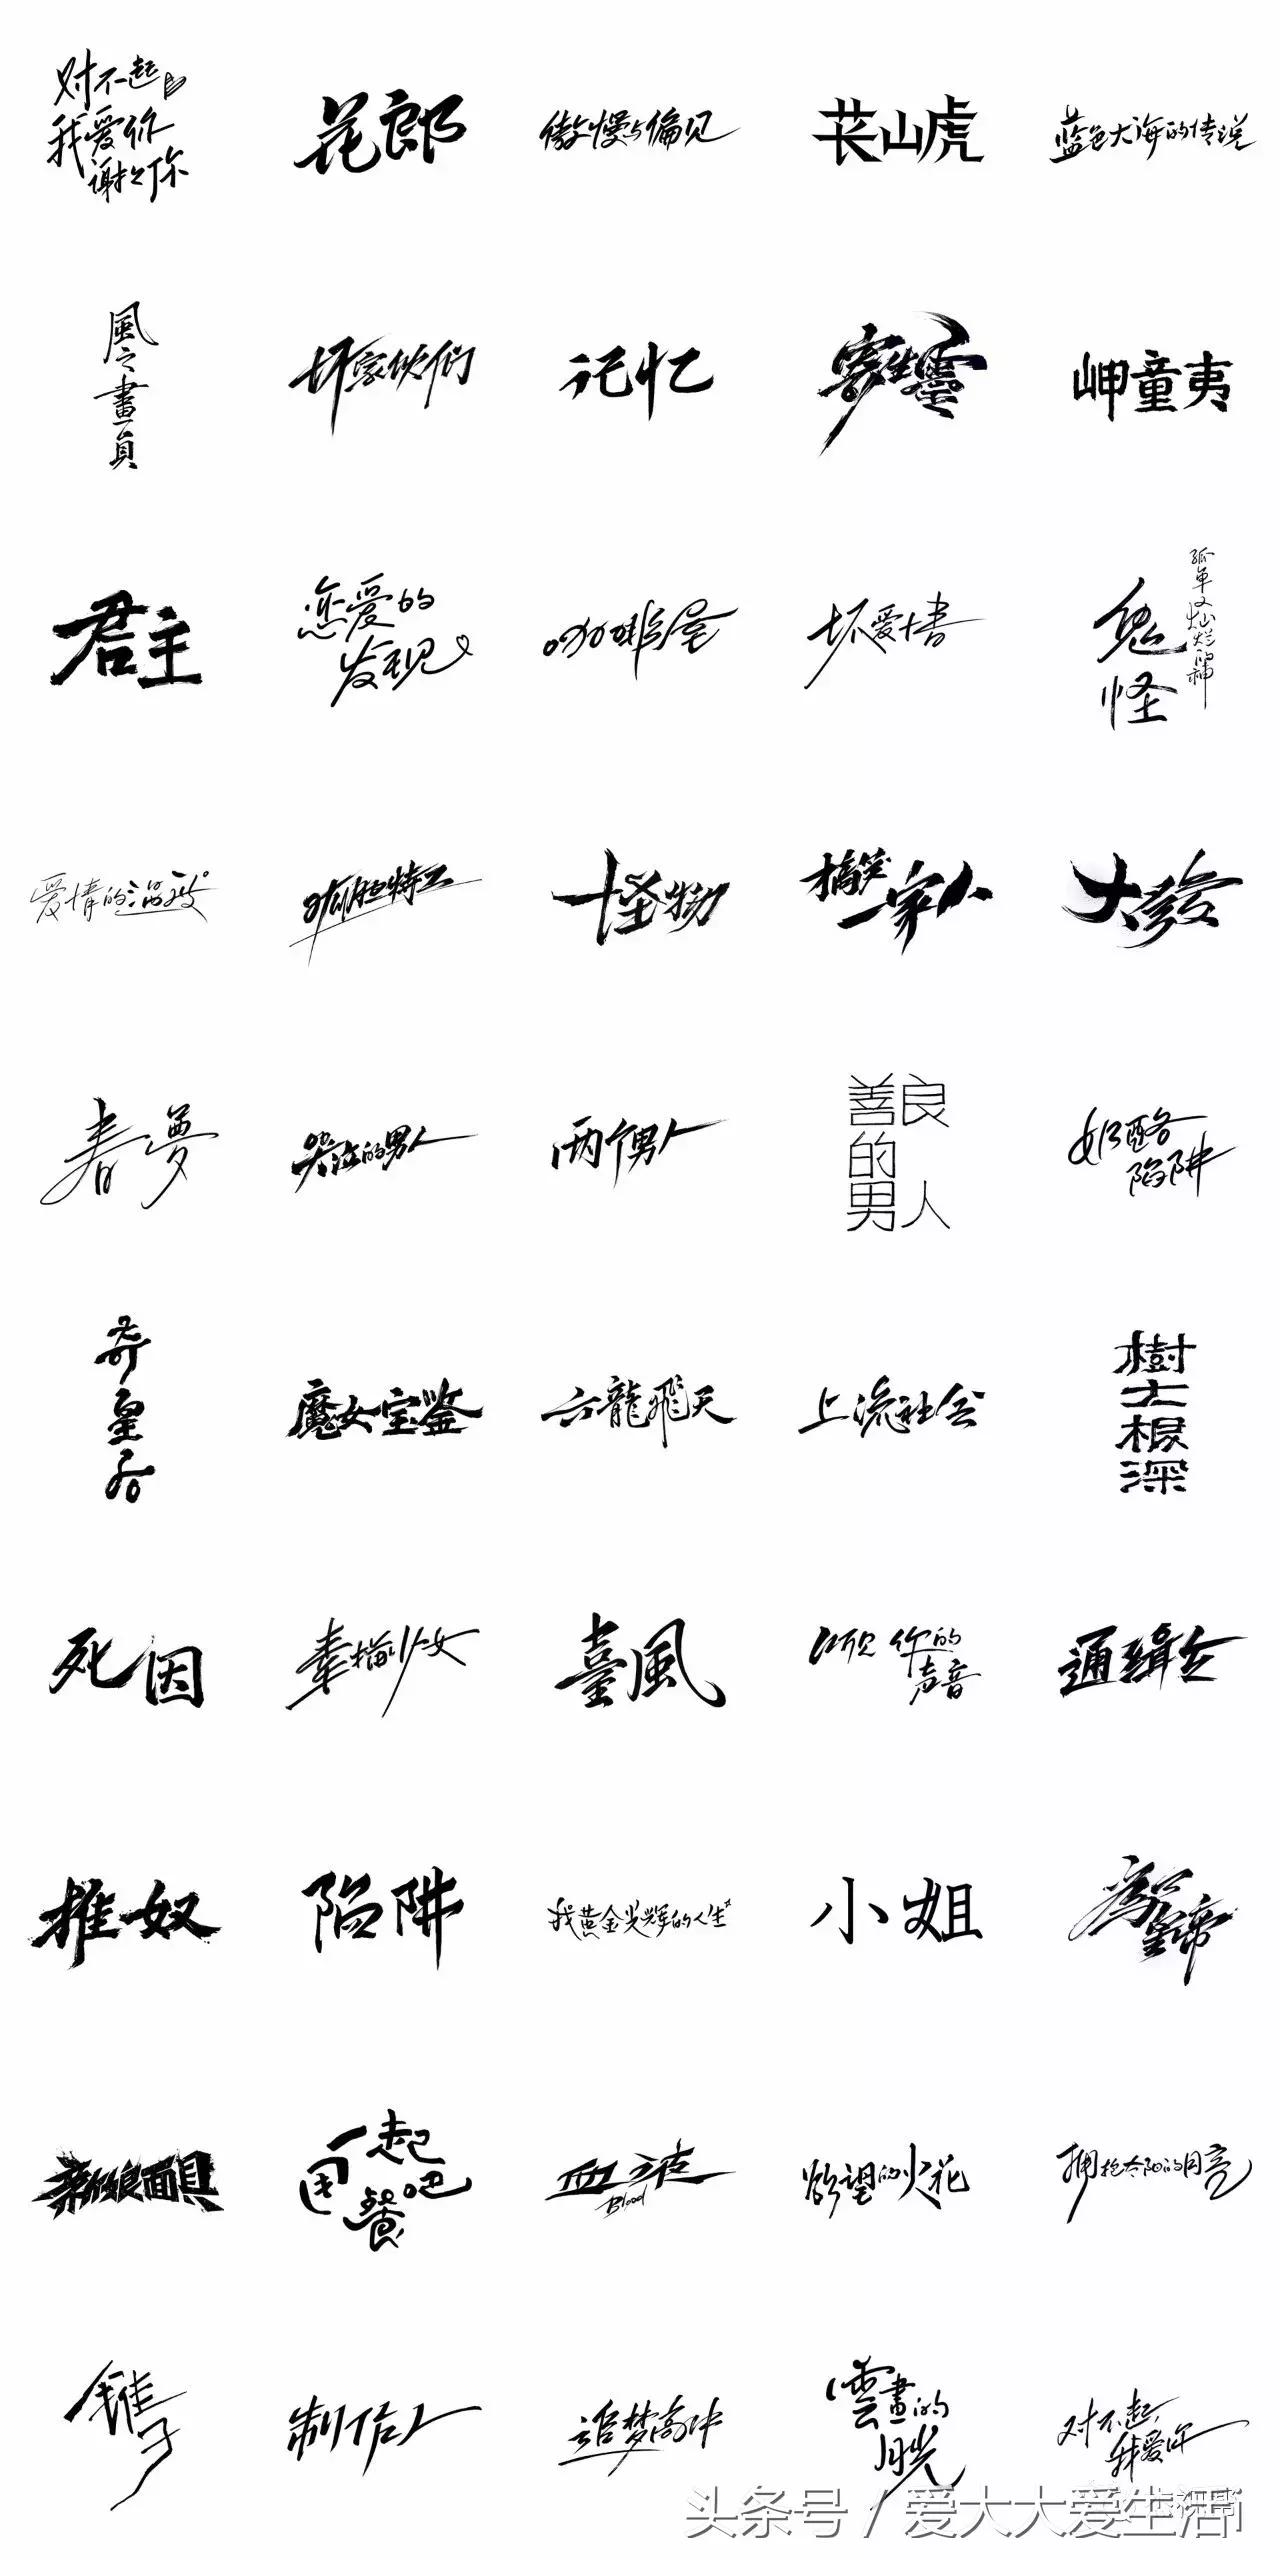 对不起
我爱你
谢谢你
花郎
傲慢与偏见
苌山虎
蓝色大海的传说
風之畫員
坏家伙们
记忆
寄生靈
岬童夷
君主
恋爱的
发现
咖啡屋
坏爱情
鬼怪
孤单又灿烂的神
爱情的温度
有胆特工
怪物
搞笑
一家人
大發
春夢
哭泣的男人
两个男人
善良
的
男人
奶酪
陷阱
奇皇后
魔女宝鉴
六龍飛天
上流社会
樹大根深
死因
素描少女
臺風
听见你的
声音
通缉令
推奴
陷阱
我黄金光辉的人生
小姐
新娘面具
一起
用餐吧
血液
Blood
欲望的火花
拥抱太阳的月亮
锥子
制作人
追梦高中
雲畫的
月光
对不起，
我爱你
头条号 / 爱大大爱生活